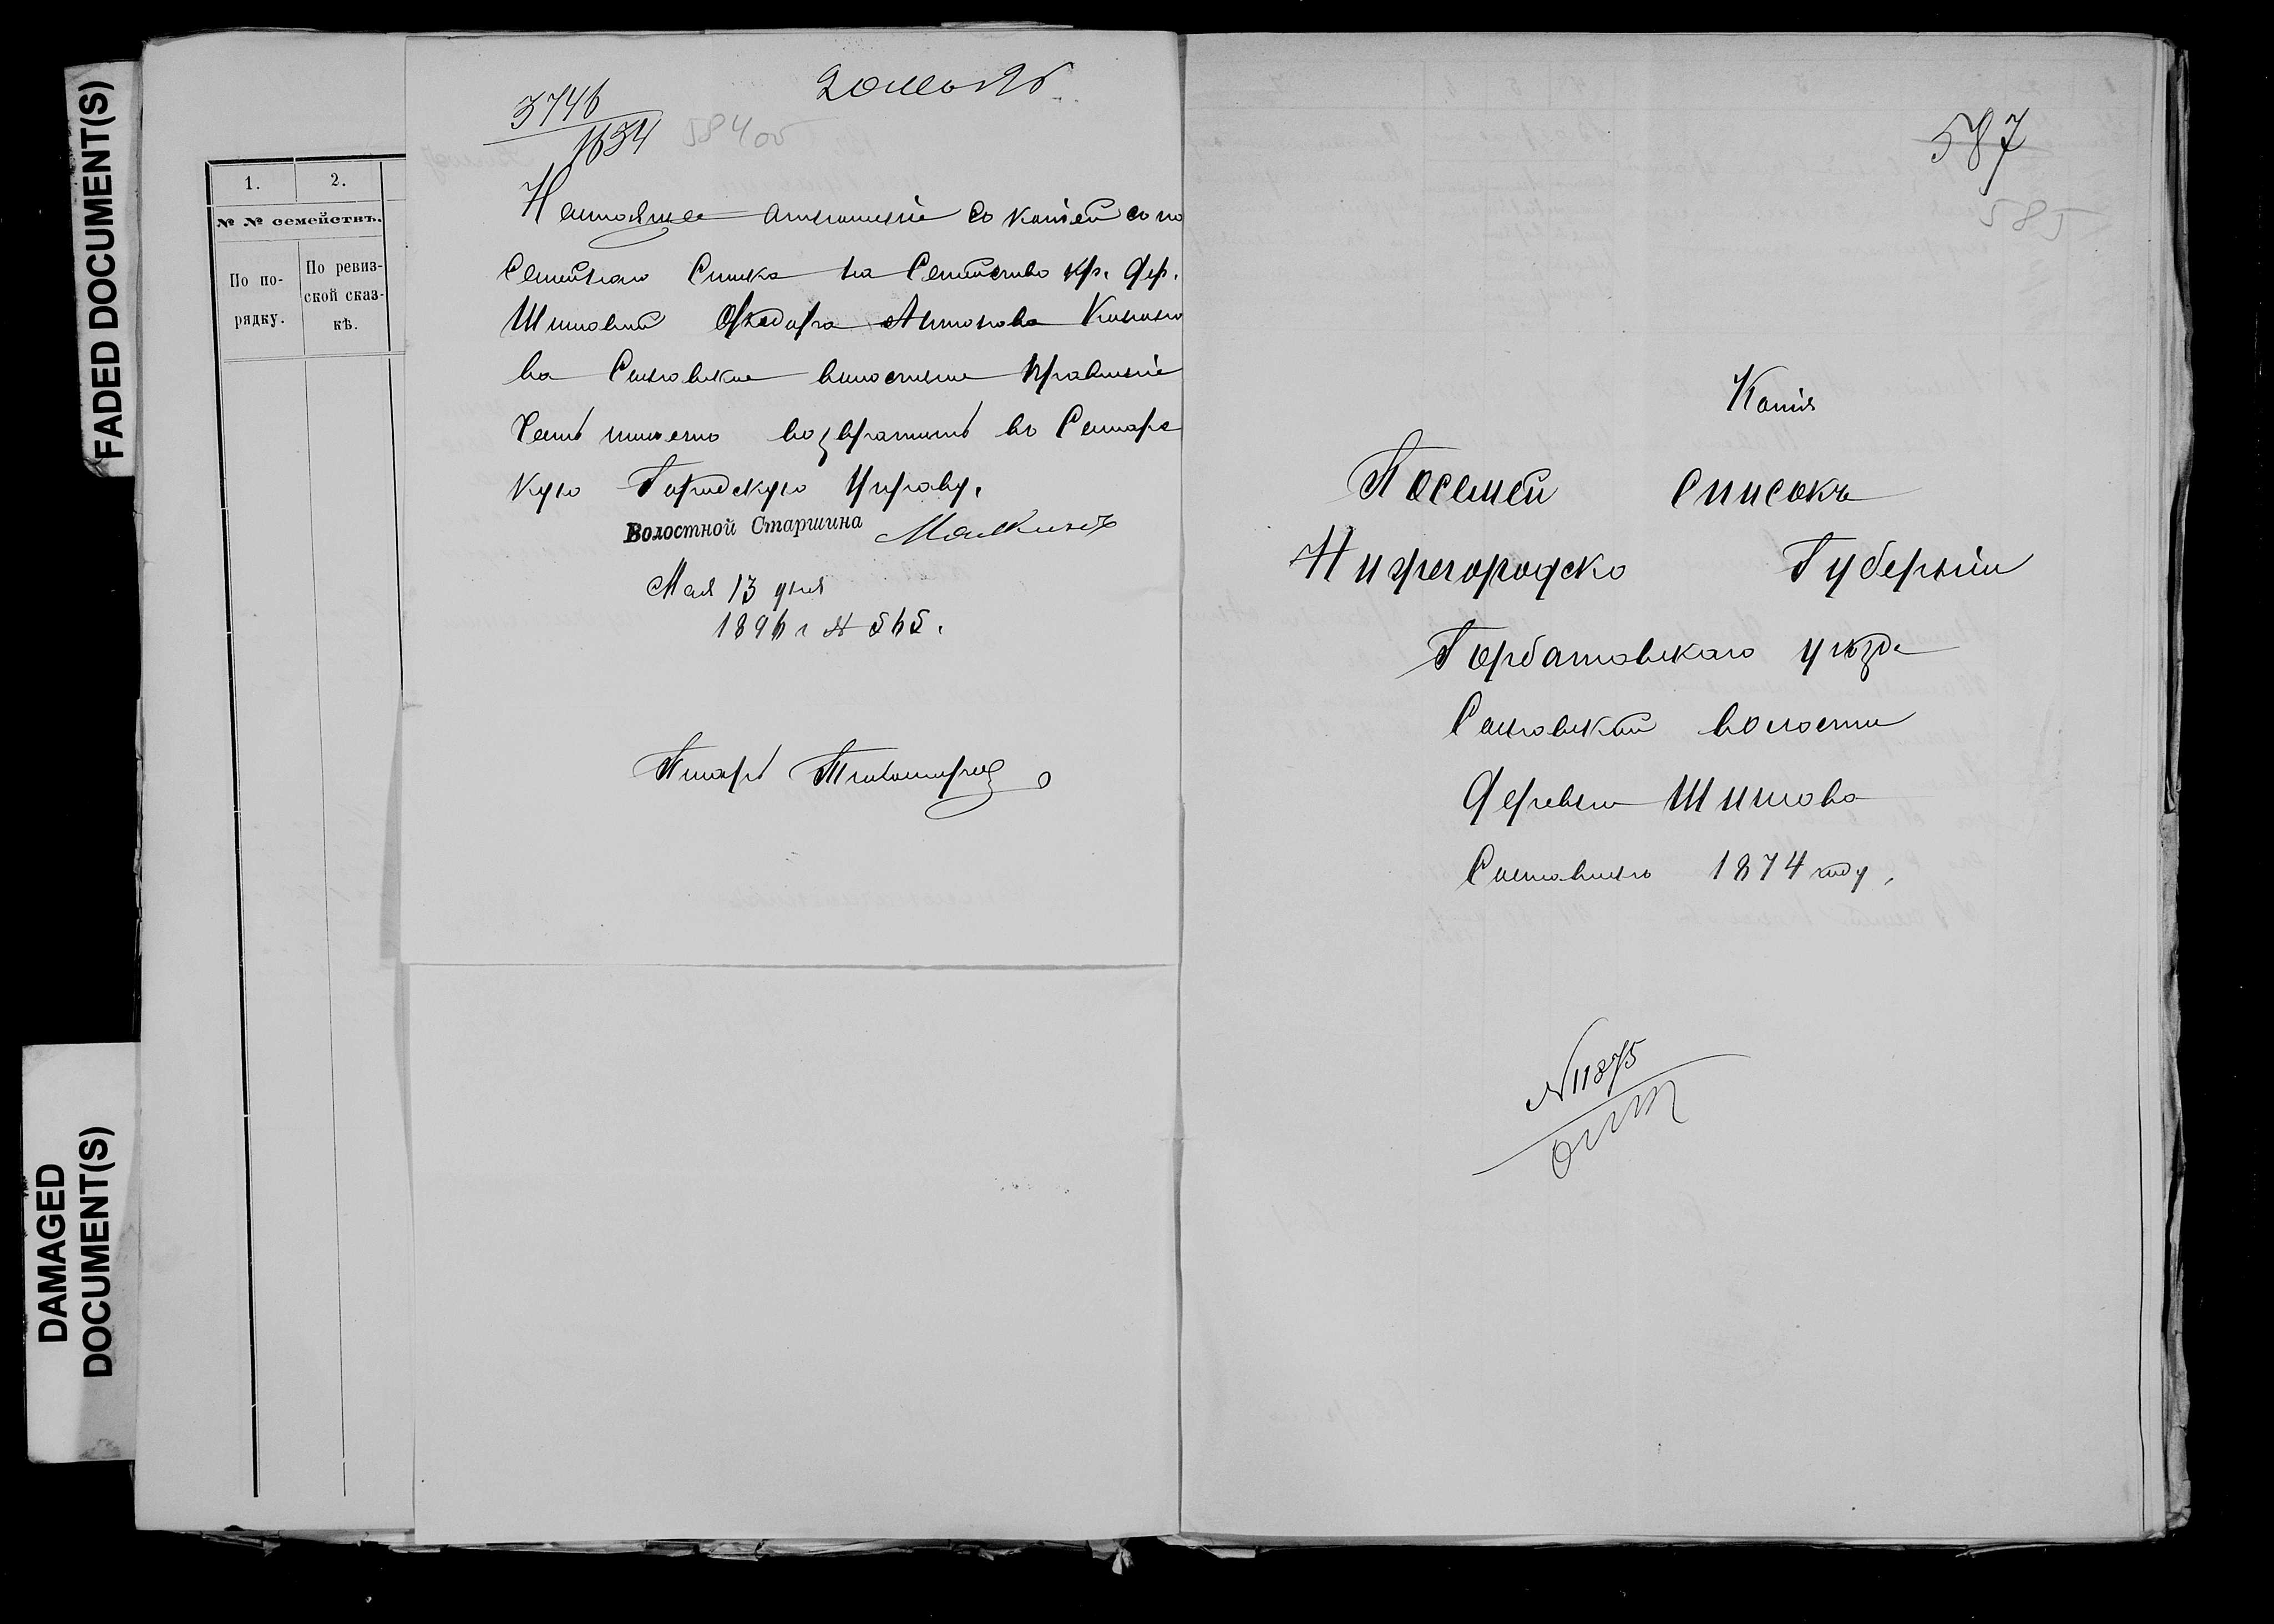 FADED DOCUMENT(S)
DAMAGED
DOCUMENT(S)
1. 2.
№ № семействъ.
По по-
рядку.
По ревиз-
ской сказ-
кѣ.
3746
1634
584 об
Настоящее отношеніе съ копіей съ по
семейнаго списка на семейство кр. дер.
Шишовой Ѳедора Антонова
ва волостное правленіе
честь имѣетъ возвратить въ Самарс
кую Городскую Управу.
Волостной Старшина
Мая 13 дня
1896 г № 565.
Писарь
587
585
Копія
Посемей списокъ
Нижегородско Губерніи
Горбатовскаго уѣзда
волости
деревни Шишова
Составленъ 1874 году.
N 11875